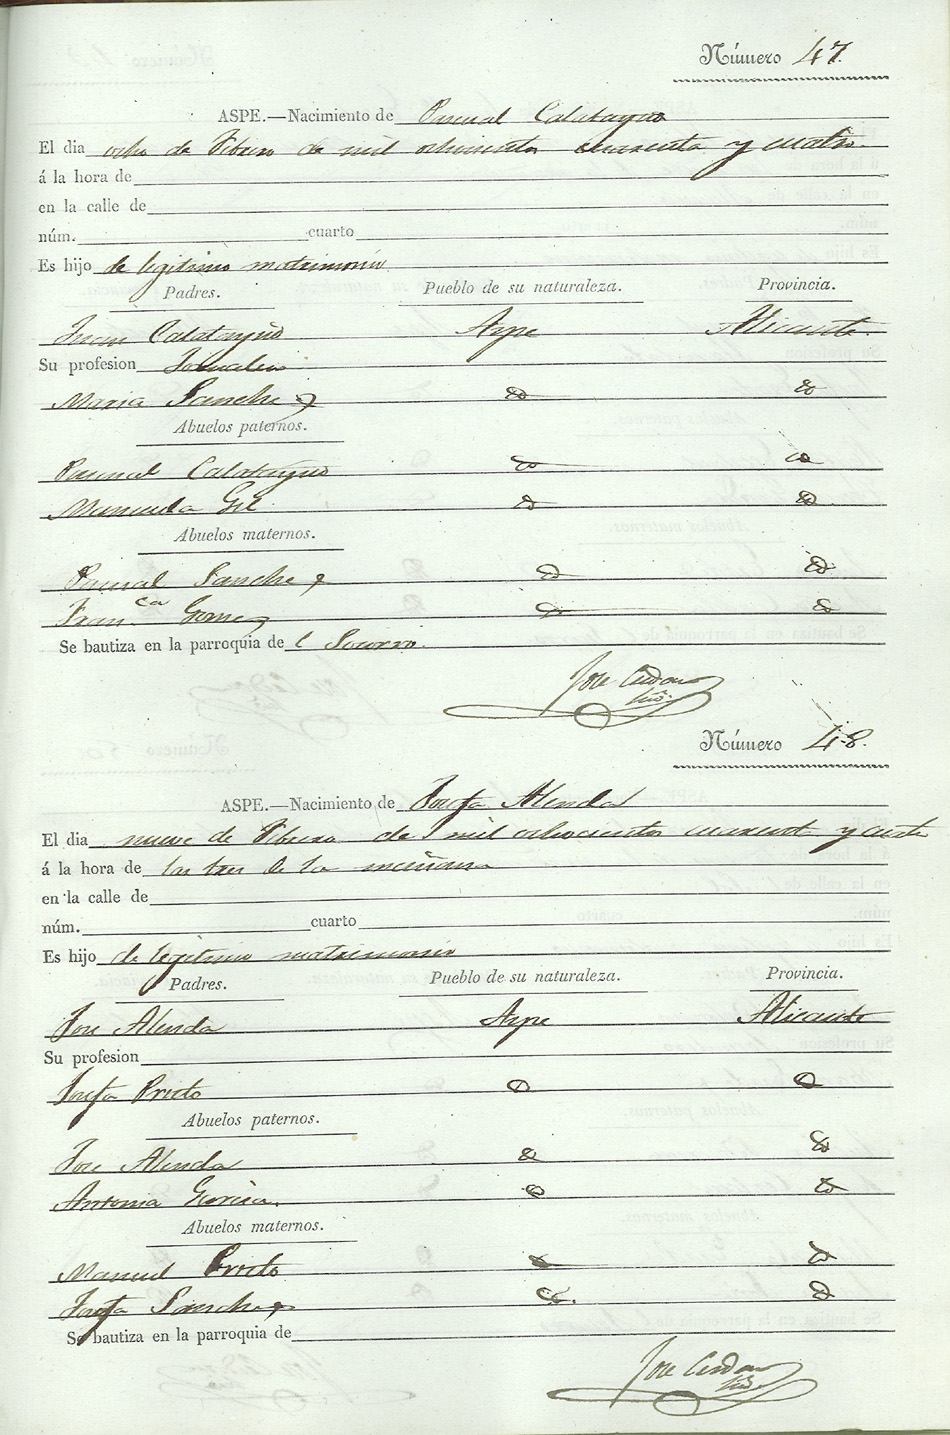 Número 47.
ASPE.—Nacimiento de Pascual Calatayud
El dia ocho de Febrero de mil ochocientos cuarenta y cuatro.
á la hora de
en la calle de
núm. cuarto
Es hijo de legitimo matrimonio
Padres. Pueblo de su naturaleza. Provincia.
Juan Calatayud Aspe Alicante
Su profesion Jornalero
Maria Sanchez
Abuelos paternos.
Pascual Calatayud
Manuela Gil
Abuelos maternos.
Pascual Sanchez
Fran.ca Gomez
Se bautiza en la parroquia de l Socorro.
Jose Cerdan
Número 48.
ASPE.—Nacimiento de Josefa Alenda
El dia nueve de Febrero de mil ochocientos cuarenta y cuatro
á la hora de las tres de la mañana
en la calle de
núm. cuarto
Es hijo de legitimo matrimonio
Padres. Pueblo de su naturaleza. Provincia.
Jose Alenda Aspe Alicante
Su profesion
Josefa Prieto
Abuelos paternos.
Jose Alenda
Antonia
Abuelos maternos.
Manuel Prieto
Josefa Sanchez
Se bautiza en la parroquia de
Jose Cerdan